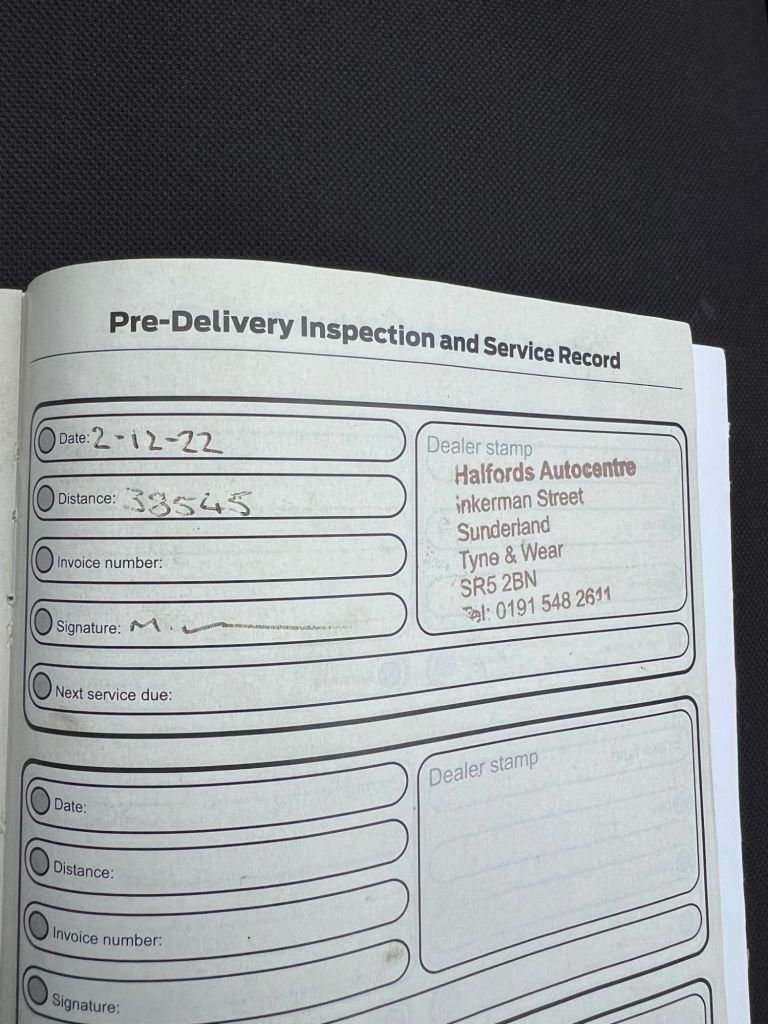 Pre-Delivery Inspection and Service Record
Date: 2-12-22
Dealer stamp
Halfords Autocentre
inkerman Street
Sunderland
Tyne & Wear
SR5 2BN
Tel: 0191 548 2611
Distance: 38545
Invoice number:
Signature: M.
Next service due:
Date:
Dealer stamp
Distance:
Invoice number:
Signature: